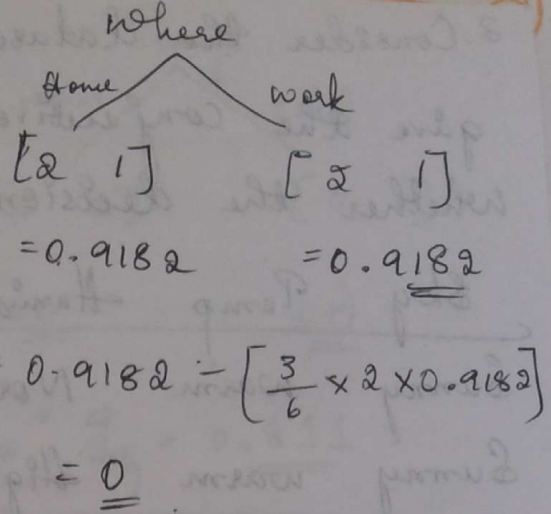 Where
Home work
[2 1] [2 1]
=0.9182 =0.9182
0.9182 - [3/6 x 2 x 0.9182]
= 0